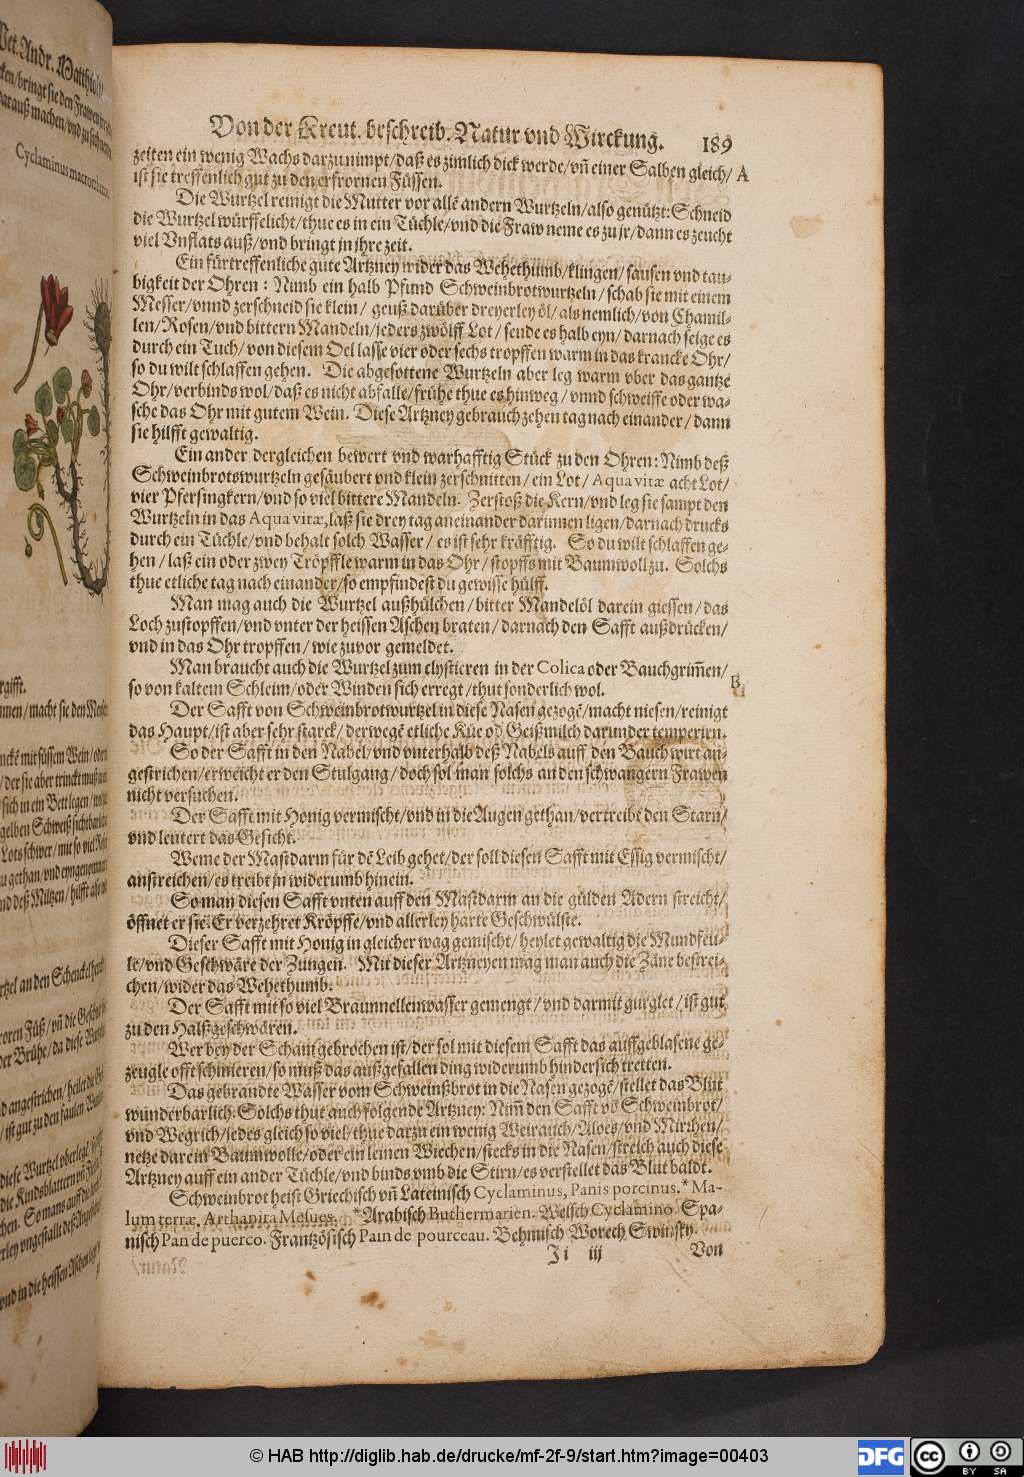 Von der Kreut. beschreib. Natur vnd Wirckung. 189
zeiten ein wenig Wachs darzu nimpt/daß es zimlich dick werde/vñ einer Salben gleich/ A
ist sie treffenlich gut zu den erfrornen Füssen.
Die Wurtzel reinigt die Mutter vor allẽ andern Wurtzeln/also genützt: Schneid
die Wurtzel würffelicht/thue es in ein Tüchle/vnd die Fraw neme es zu jr/dann es zeucht
viel Vnflats auß/vnd bringt jn jhre zeit.
Ein fürtreffenliche gute Artzney wider das Wehethumb/klingen/sausen vnd tau-
bigkeit der Ohren: Nimb ein halb Pfund Schweinbrotwurtzeln/schab sie mit einem
Messer/vnnd zerschneid sie klein/ geuß darüber dreyerley öl/als nemlich/von Chamil-
len/Rosen/vnd bittern Mandeln/jeders zwölff Lot/seude es halb eyn/darnach seige es
durch ein Tuch/von diesem Oel lasse vier oder sechs tropffen warm in das krancke Ohr/
so du wilt schlaffen gehen. Die abgesottene Wurtzeln aber leg warm vber das gantze
Ohr/verbinds wol/daß es nicht abfalle/frühe thue es hinweg/vnnd schweiffe oder wa-
sche das Ohr mit gutem Wein. Diese Artzney gebrauch zehen tag nach einander/dann
sie hilfft gewaltig.
Ein ander dergleichen bewert vnd warhafftig Stück zu den Ohren: Nimb deß
Schweinbrotswurtzeln gesäubert vnd klein zerschnitten/ein Lot/Aqua vitæ acht Lot/
vier Pfersingkern/vnd so viel bitterẽ Mandeln. Zerstoß die Kern/vnd leg sie sampt den
Wurtzeln in das Aqua vitæ, laß sie drey tag an einander darinnen ligen/darnach drucks
durch ein Tüchle/vnd behalt solch Wasser/es ist sehr kräfftig. So du wilt schlaffen ge-
hen/laß ein oder zwey Tröpffle warm in das Ohr/stopffs mit Baumwoll zu. Solchs
thue etliche tag nach einander/so empfindest du gewisse hülff.
Man mag auch die Wurtzel außhülchen/bitter Mandelöl darein giessen/das
Loch zustopffen/vnd vnter der heissen Aschen braten/darnach den Safft außdrücken/
vnd in das Ohr tropffen/wie zuvor gemeldet.
Man braucht auch die Wurtzel zum clystieren in der Colica oder Bauchgrim̃en/ B
so von kaltem Schleim/oder Winden sich erregt/thut sonderlich wol.
Der Safft von Schweinbrotwurtzel in diese Nasen gezogẽ/macht niesen/reinigt
das Haupt/ist aber sehr starck/derwegẽ etliche Küe oď Geißmilch darunder temperirn.
So der Safft in den Nabel/vnd vnterhalb deß Nabels auff den Bauch wirt an-
gestrichen/erweicht er den Stulgang/doch sol man solchs an den schwangern Frawen
nicht versuchen.
Der Safft mit Honig vermischt/vnd in die Augen gethan/vertreibt den Starn/
vnd leutert das Gesicht.
Weme der Mastdarm für dẽ Leib gehet/der soll diesen Safft mit Essig vermischt/
anstreichen/es treibt jn widerumb hinein.
So man diesen Safft vnten auff den Mastdarm an die gülden Adern streicht/
öffnet er sie. Er verzehret Kröpffe/vnd allerley harte Geschwülste.
Dieser Safft mit Honig in gleicher wag gemischt/heylet gewaltig die Mundfeu-
le/vnd Geschwäre der Zungen. Mit dieser Artzneyen mag man auch die Zäne bestrei-
chen/wider das Wehethumb.
Der Safft mit so viel Braunnellenwasser gemengt/vnd darmit gurglet/ist gut
zu den Halßgeschwären.
Wer bey der Scham gebrochen ist/der sol mit diesem Safft das auffgeblasene ge-
zeugle offt schmieren/so muß das außgefallen ding widerumb hindersich tretten.
Das gebrandte Wasser vom Schweinßbrot in die Nasen gezogẽ/stellet das Blut
wunderbarlich. Solchs thut auch folgende Artzney: Nim̃ den Safft võ Schweinbrot/
vnd Wegrich/jedes gleich so viel/thue darzu ein wenig Weirauch/Aloes/vnd Mirrhen/
netze darein Baumwolle/oder ein leinen Wiechen/stecks in die Nasen/streich auch diese
Artzney auff ein ander Tüchle/vnd binds vmb die Stirn/es verstellet das Blut baldt.
Schweinbrot heist Griechisch vñ Lateinisch Cyclaminus, Panis porcinus. * Ma-
lum terræ, Arthanita Mesues. * Arabisch Buthermarien. Welsch Cyclamino. Spa-
nisch Pan de puerco. Frantzösisch Pain de pourceau. Behmisch Worech Swinsky.
Ji iij Von
Cyclaminus macrorrhizos.
© HAB http://diglib.hab.de/drucke/mf-2f-9/start.htm?image=00403
DFG
cc BY SA